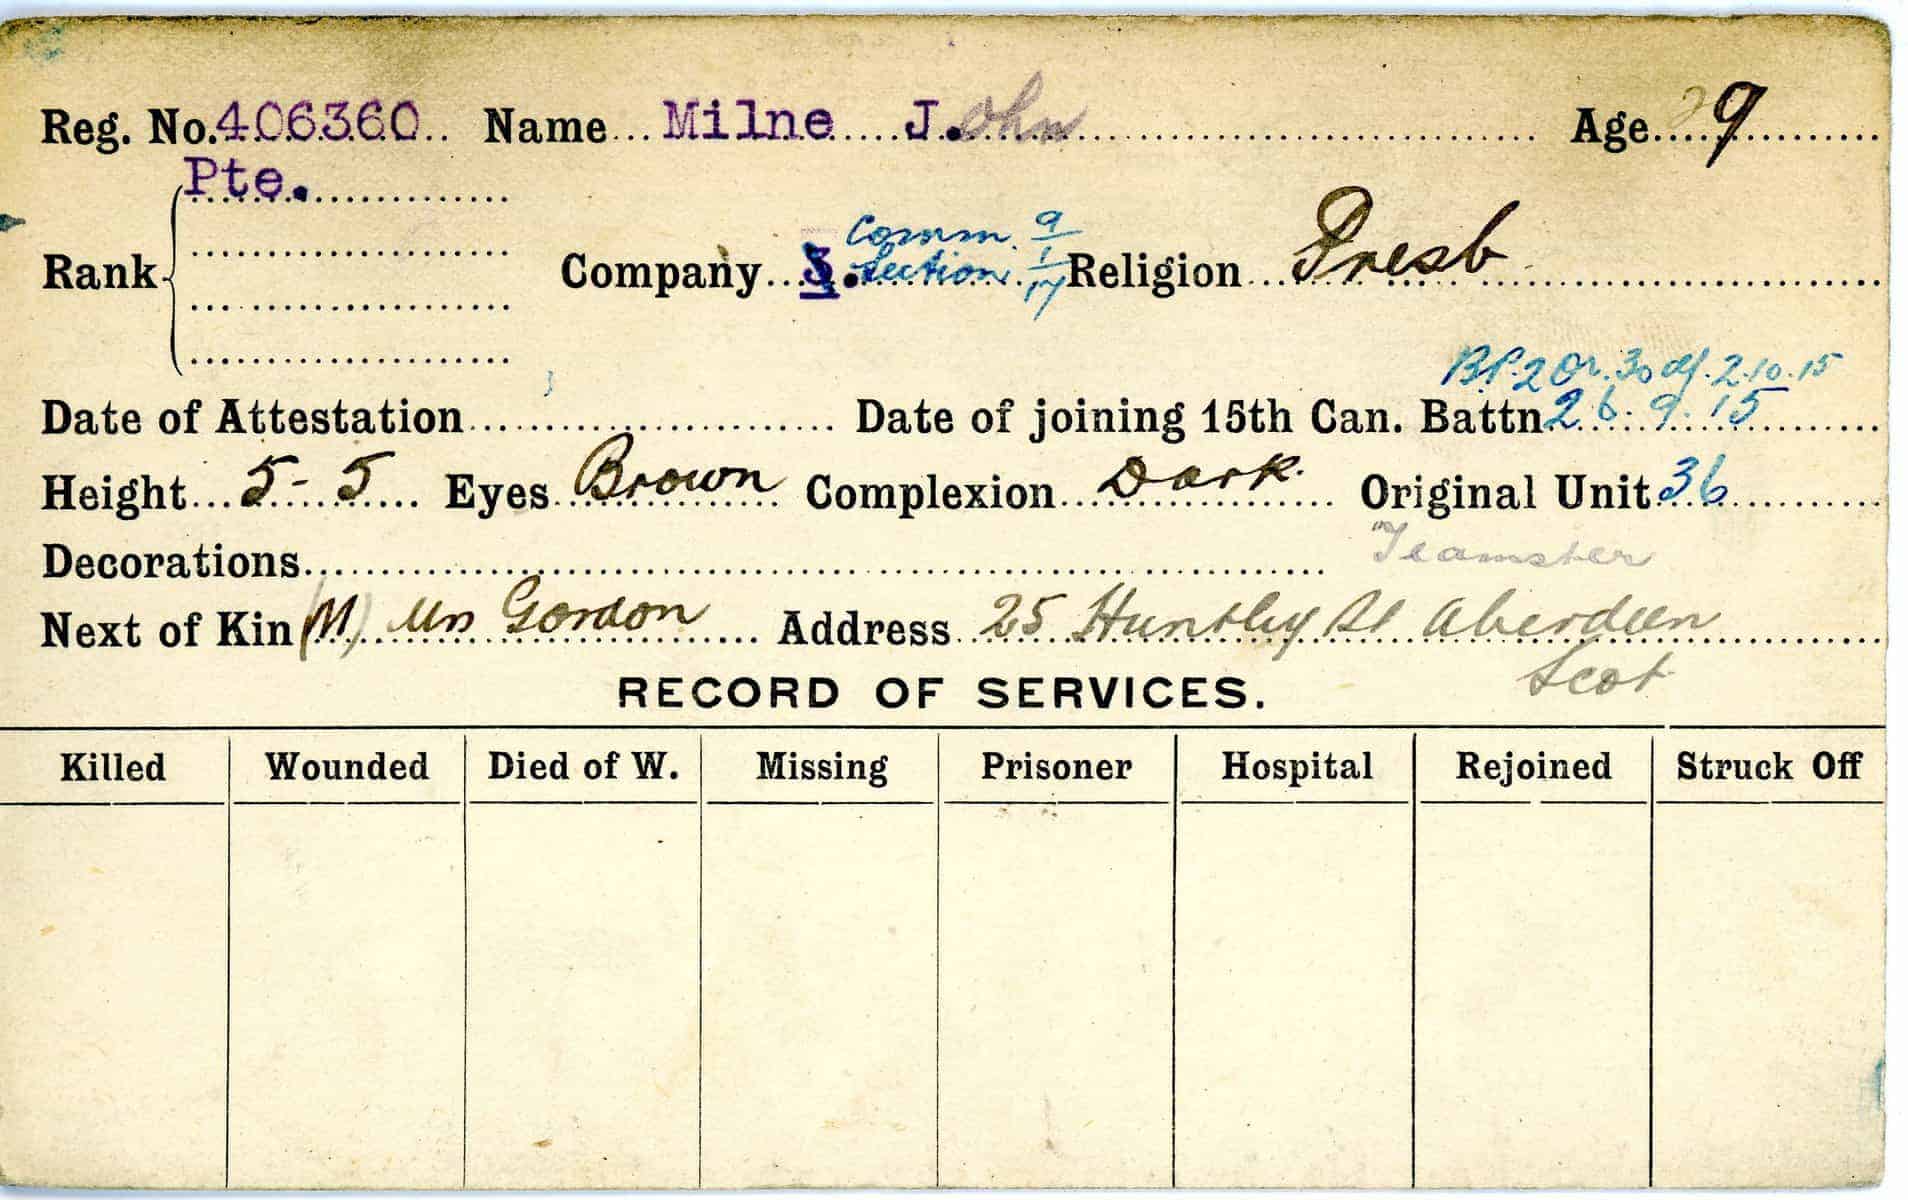 Reg. No. 406360 Name Milne J.ohn Age 29
Pte.
Comm. 9/1/17
Rank Company Section Religion Presb
B.P. 2 Or. 30 of 2.10.15
Date of Attestation Date of joining 15th Can. Battn. 26.9.15
Height 5-5 Eyes Brown Complexion Dark. Original Unit 36
Decorations "Teamster
Next of Kin (M) Mrs Gordon Address 25 Huntly St Aberdeen
Scot
RECORD OF SERVICES.
Killed Wounded Died of W. Missing Prisoner Hospital Rejoined Struck Off